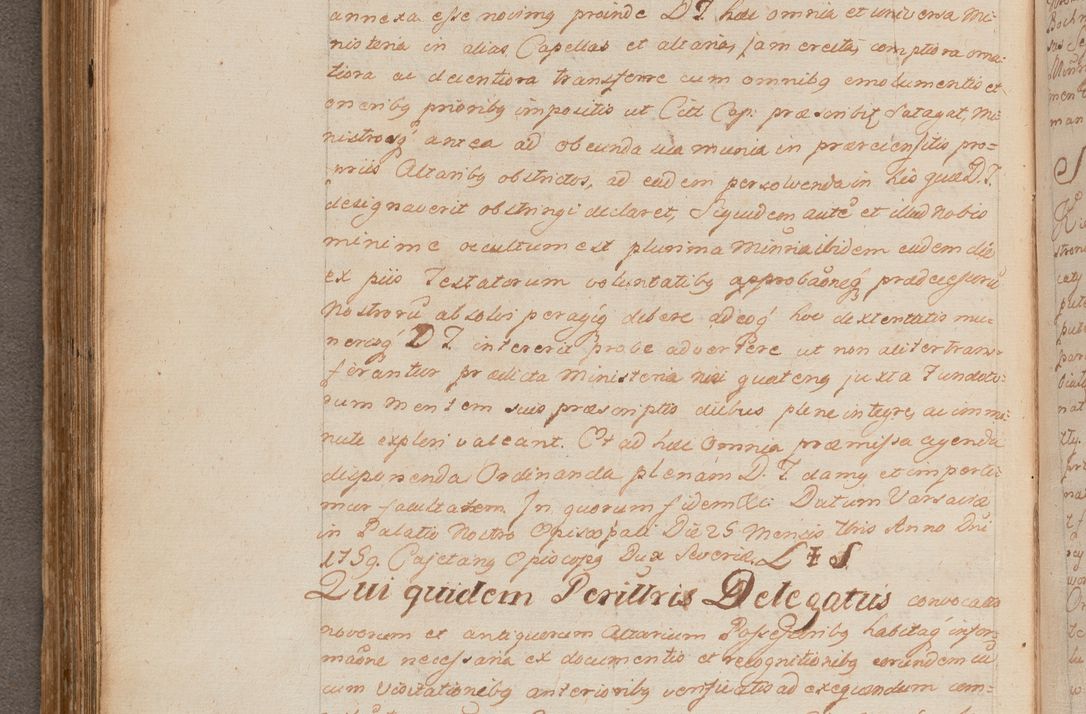 annexa esse novimg proinde D T. hæc omnia et universa Mi-
nisteria in alias Capellas et altaria, jam erecta, comptiora orna-
tiora ac decentiora transferre cum omnibg emolumentis et
oneribg prioribg impositis ut Citt Cap: præscribit, satagat, Mi-
nistrosq antea ad obeunda sua munia in præcensitis pro-
priis Altaribg obstrictos, ad eadem persolvenda in his quæ D. T.
designaverit obstringi declaret, Siquidem aute et illud Nobis
minime occultum est plurima Minria ibidem eadem die
ex piis Testatorum voluntatibg approbaoneq prædecessoru
Nostroru absolvi peragiq debere, adeoq hoc
neriq D T. intererit probe advertere ut non aliter trans-
ferantur prædicta Ministeria nisi quateng juxta Fundato-
rum mentem suis præscriptis diebus plene integre, ac immi-
nute expleri valeant. Et ad hæc Omnia præmissa agenda
disponenda Ordinanda plenam D. T. damg et imperti-
mur facultatem. In quorum fidem Datum Varsaviæ
in Palatio Nostro Episcopali Die 25 Mensis Anno Dni
1759. Cajetang Episcopg Dux Severiæ. L + S
Qui quidem Perillris Delegatus convocatis
novorum et antiquorum Altarium Possessoribg habitaq infor-
maone necessaria ex documentis et recognitionibg eorundem cu
cum Visitationibg anterioribg verificatis ad exequendum com-